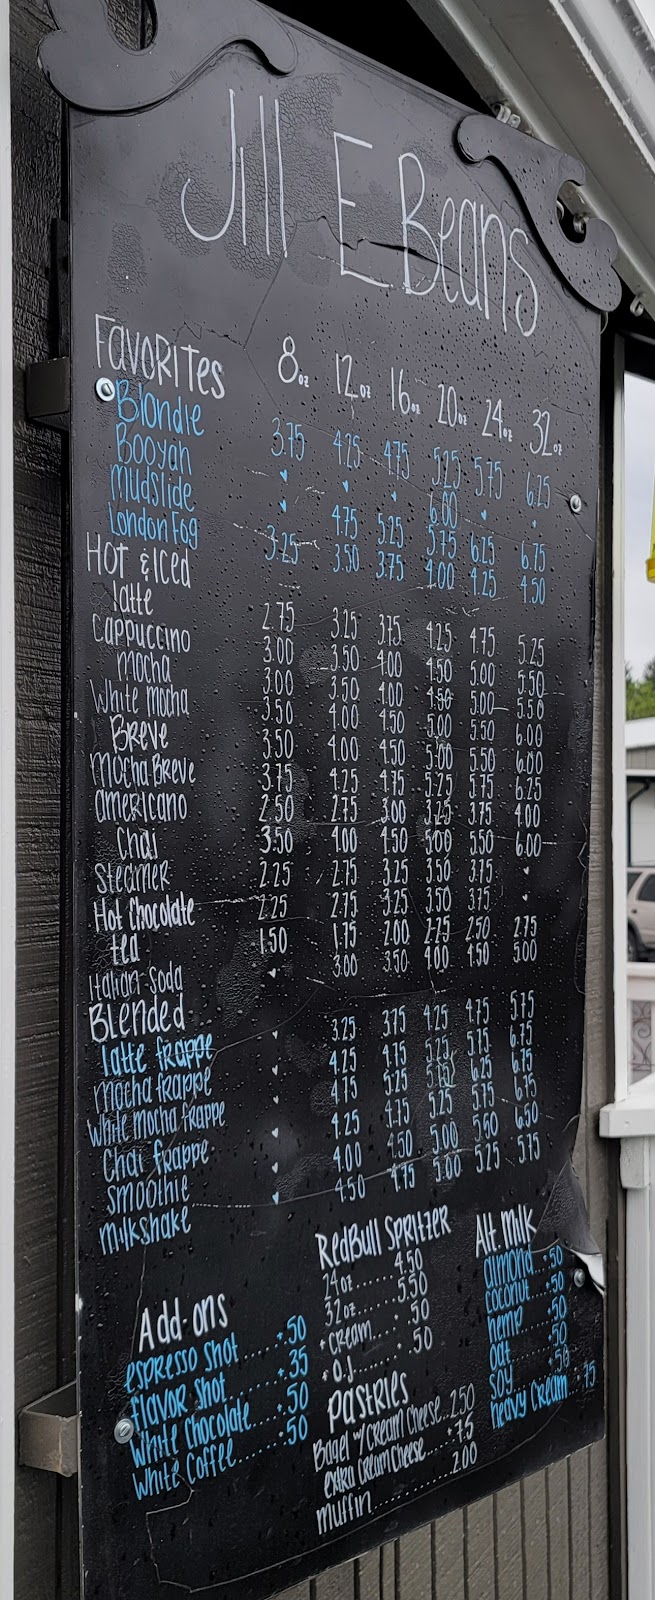 Jill E Beans
Favorites 8oz 12oz 16oz 20oz 24oz 32oz
Blondie 3.75 4.25 4.75 5.25 5.75 6.25
Booyah ♥ ♥ ♥ 6.00 ♥ ♥
Mudslide ♥ 4.75 5.25 5.75 6.25 6.75
London Fog 3.25 3.50 3.75 4.00 4.25 4.50
Hot & Iced
latte 2.75 3.25 3.75 4.25 4.75 5.25
Cappuccino 3.00 3.50 4.00 4.50 5.00 5.50
mocha 3.00 3.50 4.00 4.50 5.00 5.50
White mocha 3.50 4.00 4.50 5.00 5.50 6.00
Breve 3.50 4.00 4.50 5.00 5.50 6.00
mocha Breve 3.75 4.25 4.75 5.25 5.75 6.25
americano 2.50 2.75 3.00 3.25 3.75 4.00
Chai 3.50 4.00 4.50 5.00 5.50 6.00
Steamer 2.25 2.75 3.25 3.50 3.75 ♥
Hot Chocolate 2.25 2.75 3.25 3.50 3.75 ♥
tea 1.50 1.75 2.00 2.25 2.50 2.75
Italian-Soda ♥ 3.00 3.50 4.00 4.50 5.00
Blended
latte frappe ♥ 3.25 3.75 4.25 4.75 5.75
mocha frappe ♥ 4.25 4.75 5.25 5.75 6.75
White mocha frappe ♥ 4.75 5.25 5.75 6.25 6.75
Chai frappe ♥ 4.25 4.75 5.25 5.75 6.75
Smoothie ♥ 4.00 4.50 5.00 5.50 6.50
milkshake ♥ 4.50 4.75 5.00 5.25 5.75
Add-ons
espresso shot....+.50
flavor shot.....+.35
White Chocolate....+.50
White Coffee.......50
RedBull Spritzer
24oz......4.50
32oz......5.50
+cream.....50
+O.J......50
Pastries
Bagel w/ Cream Cheese..2.50
extra Cream Cheese....+.75
muffin............2.00
Alt. Milk
almond...+.50
coconut..+.50
hemp...+.50
oat....+.50
soy....+.50
heavy Cream...75